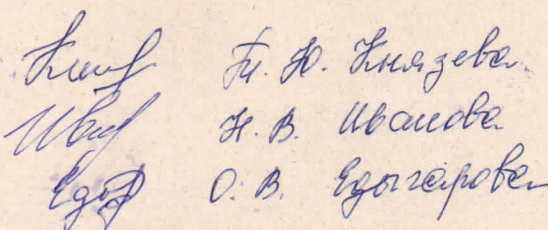 Т. Ю. Князева
Н. В. Иванова
О. В. Едыгарова